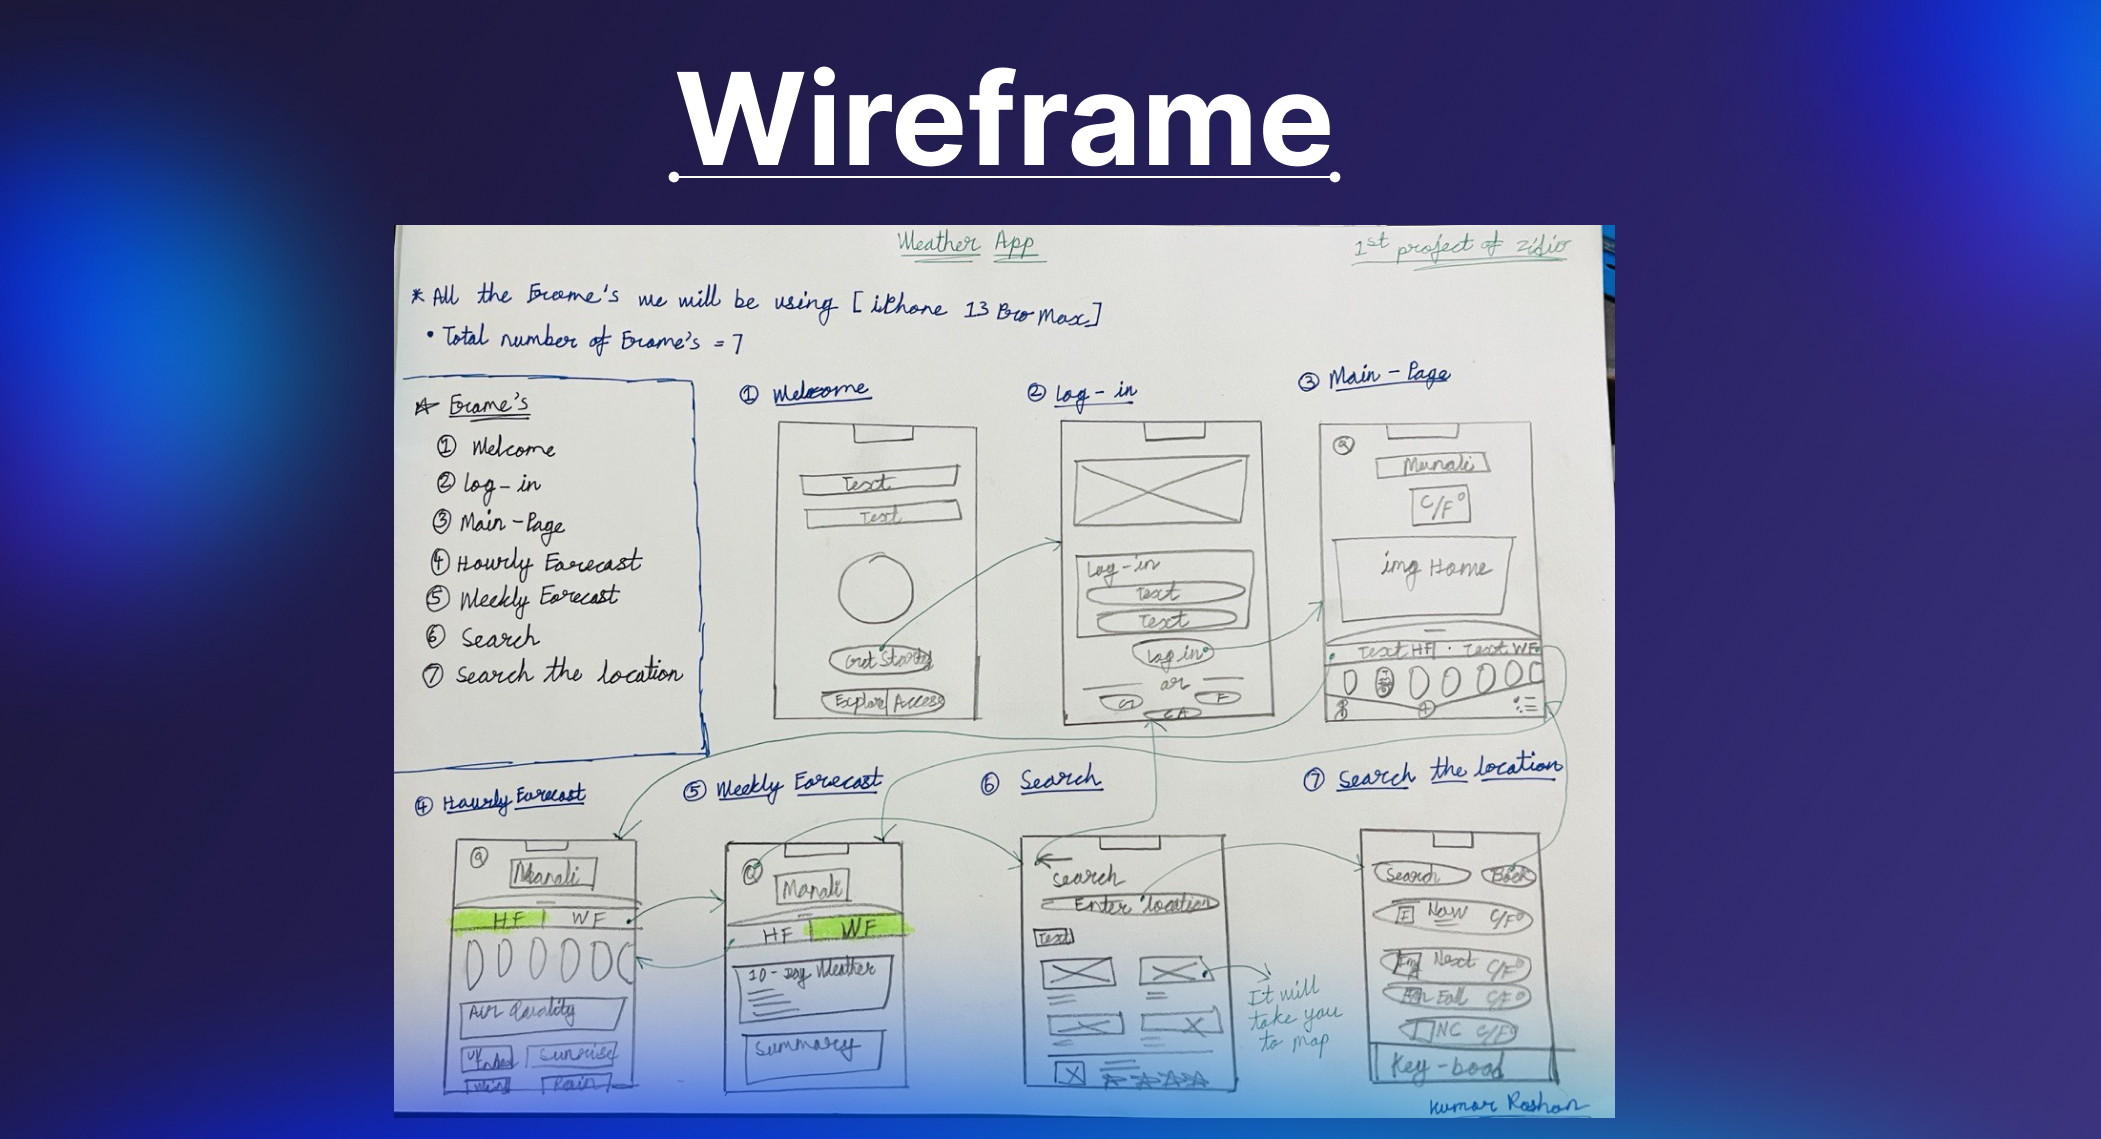 Wireframe
Weather App
1st project of zidio
* All the Frame's we will be using [iPhone 13 Pro Max]
• Total number of Frame's = 7
Frame's
① Welcome
② Log-in
③ Main-Page
④ Hourly Forecast
⑤ Weekly Forecast
⑥ Search
⑦ Search the location
① Welcome
Text
Text
Get Started
Explore Access
② Log-in
Log-in
Text
Text
Log in
or
G
F
CA
③ Main-Page
Manali
C/F°
img Home
Text HF · Text WF
④ Hourly Forecast
Manali
HF WF
Air Quality
UV Index Sunrise
Wind Rain
⑤ Weekly Forecast
Manali
HF WF
10-Day Weather
Summary
⑥ Search
Search
Enter location
Text
It will
take you
to map
⑦ Search the location
Search Back
Now C/F°
Next C/F°
Fall C/F°
NC C/F°
Key-boad
Kumar Roshan